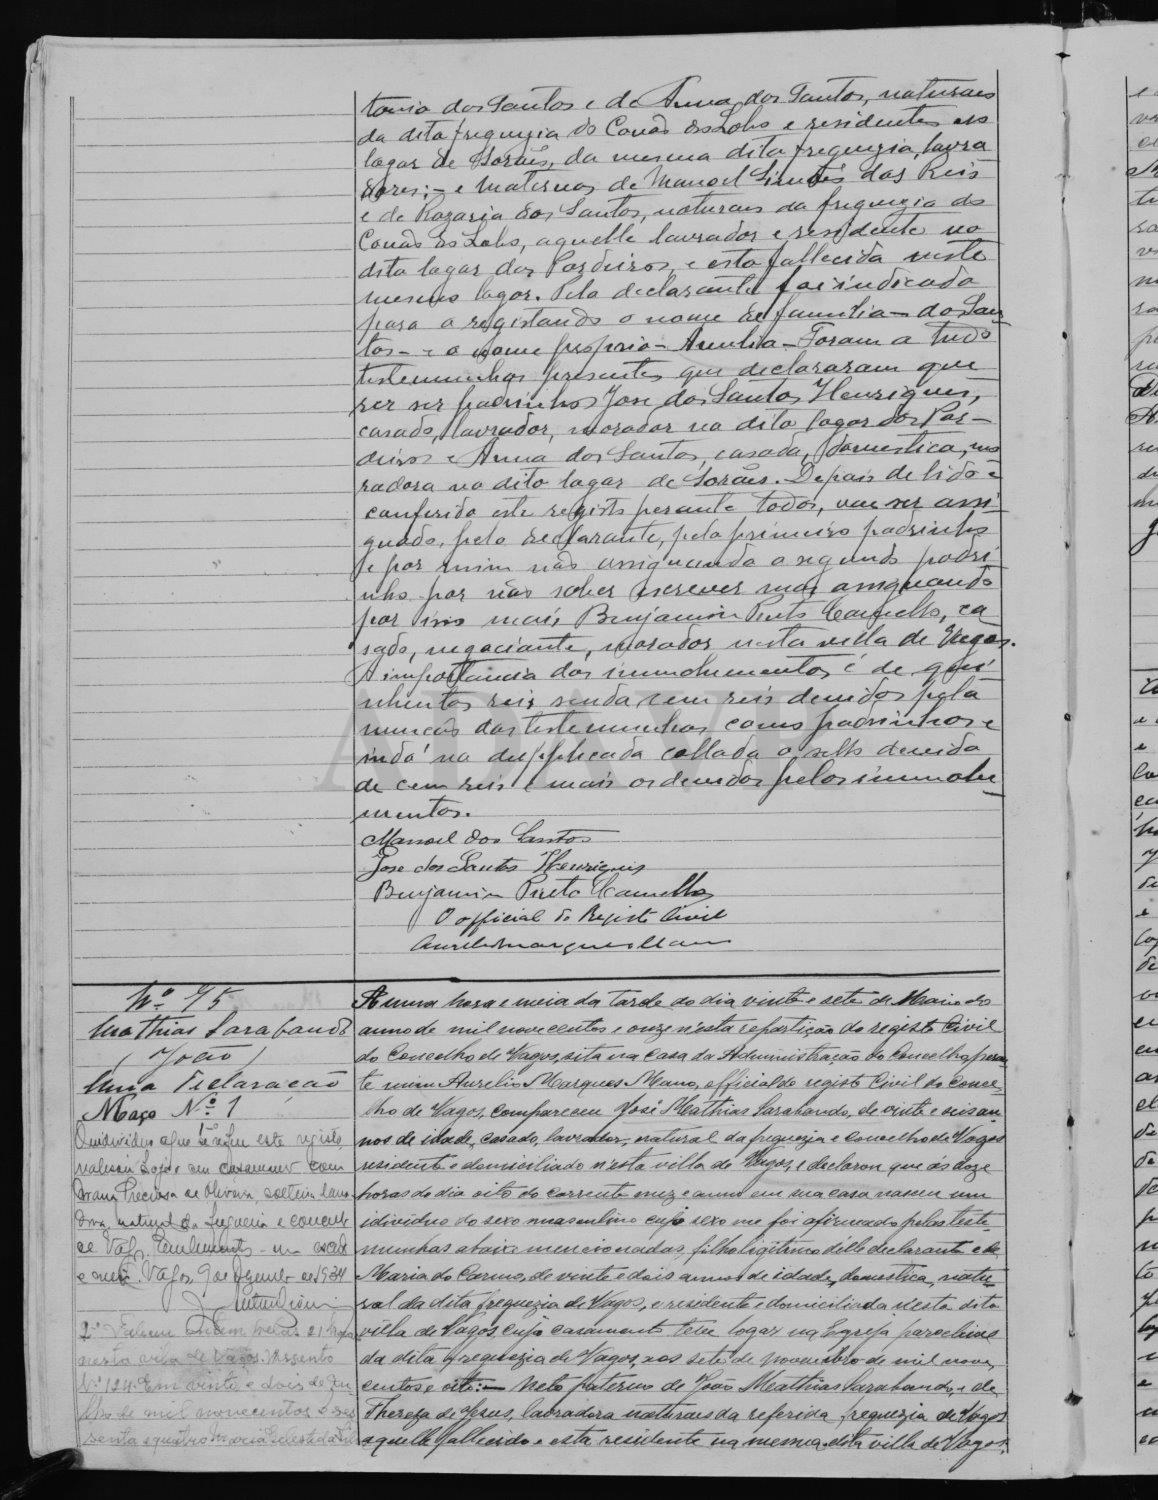 tonio dos Santos e de Anna dos Santos, naturaes
da dita freguezia de Covão do Lobo e residentes no
logar de Sorães, da mesma dita freguezia, lavra
dores; - e maternos de Manoel Simões dos Reis
e de Rozaria dos Santos, naturaes da freguezia de
Covão do Lobo, aquelle lavrador e residente no
dito logar dos Pardeiros, e esta fallecida neste
mesmo logar. Pelo declarante foi indicado
para o registando o nome de familia - dos San
tos - e o nome proprio - Amelia - Foram a tudo
testemunhas presentes que declararam que
rer ser padrinhos José dos Santos Henriques,
casado, lavrador, morador no dito logar dos Par-
deiros e Anna dos Santos, casada, domestica, mo
radora no dito logar de Sorães. Depois de lido e
conferido este registo perante todos, vae ser assi
gnado, pelo declarante, pelo primeiro padrinho
e por mim não assignando a segunda padri
nho por não saber escrever mas assignando
por isso mais Benjamin Pinto Camello, ca
sado, negociante, morador nesta villa de Vagos.
A importancia dos immolumentos é de qui
nhentos reis sendo cem reis devidos pela
menção das testemunhas como padrinhos e
inda' na duplicada collado o sello devido
de cem reis e mais os devidos pelos immolu
mentos.
Manoel dos Santos
José dos Santos Henriques
Benjamin Pinto Camello
O official do Registo Civil
Aurelio Marques Mano
Nº 75
Mathias Sarabando
(João)
Uma Declaração
Maço Nº 1
O individuo a que se refere este registo,
casamento com
Preciosa de Oliveira, solteira
natural da freguezia e concelho
de Vagos
Vagos, 9 de de 1934
nesta vila de Vagos. Assento
Nº 124. Em vinte e dois de Ju
lho de mil novecentos e ses
senta e quatro
A uma hora e meia da tarde do dia vinte e sete de Maio do
anno de mil novecentos e onze n'esta repartição do registo Civil
do Concelho de Vagos, sita na casa da Administração do Concelho, peran
te mim Aurelio Marques Mano, official do registo Civil do Conce-
lho de Vagos, compareceu José Mathias Sarabando, de vinte e seis an-
nos de idade, casado, lavrador, natural da freguezia e concelho de Vagos
residente e domiciliado n'esta villa de Vagos, e declarou que ás doze
horas do dia oito do corrente mez e anno em sua casa nasceu um
individuo do sexo masculino cujo sexo me foi afirmado pelas teste-
munhas abaixo mencionadas, filho ligitimo d'elle declarante e de
Maria do Carmo, de vinte e dois annos de idade, domestica, natu-
ral da dita freguezia de Vagos, e residente e domiciliada n'esta dita
villa de Vagos, cujo casamento teve logar na Egreja parochial
da dita freguezia de Vagos, aos sete de novembro de mil nove
centos e oito; - Neto paterno de João Mathias Sarabando e de
Thereza de Jesus, lavradora naturaes da referida freguezia de Vagos
aquelle fallecido e esta residente na mesma dita villa de Vagos,